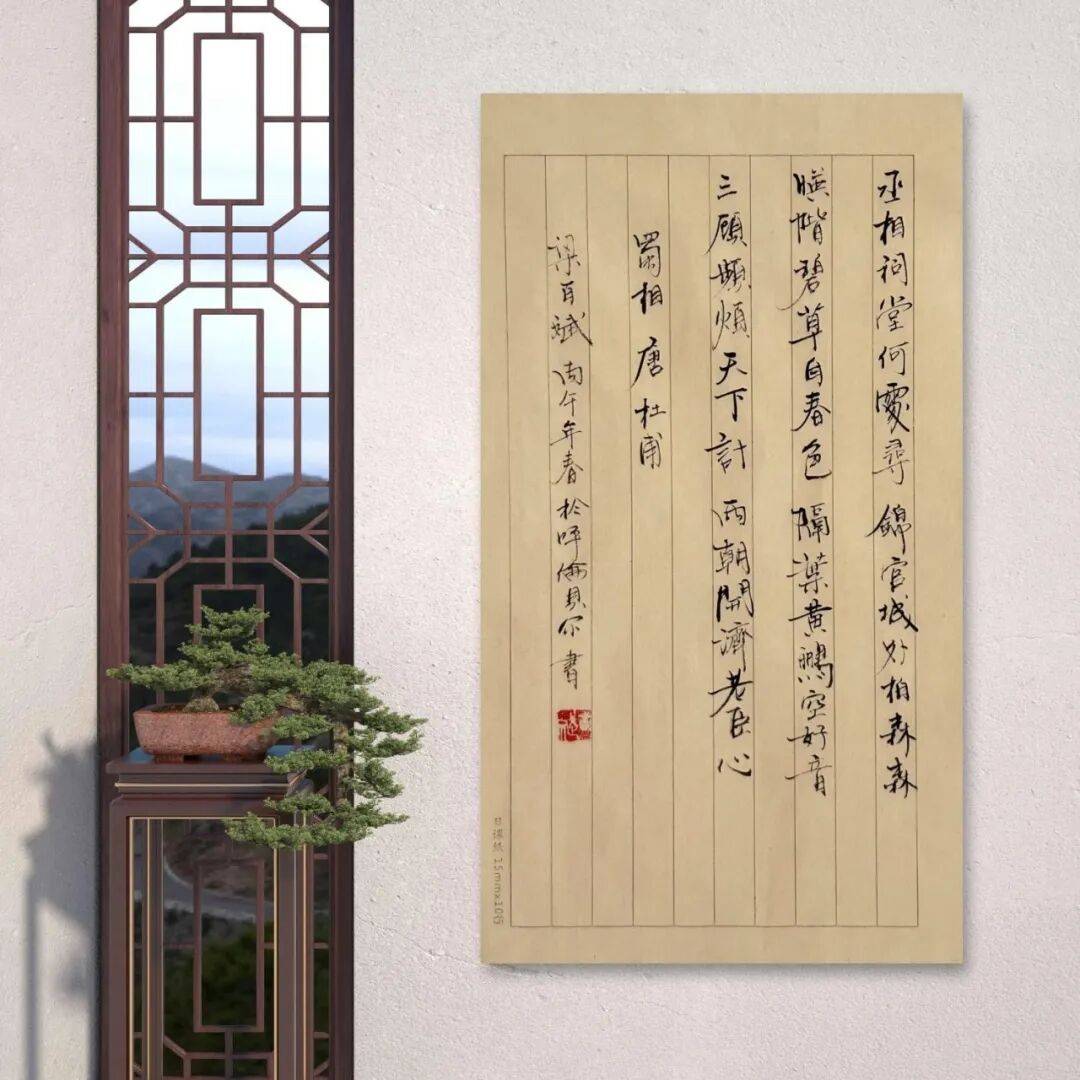 丞相祠堂何處尋 錦官城外柏森森
暎階碧草自春色 隔葉黃鸝空好音
三顧頻煩天下計 兩朝開濟老臣心
蜀相 唐 杜甫
梁百斌 丙午年春於呼倫貝尔書
日課紙 15mmx10行